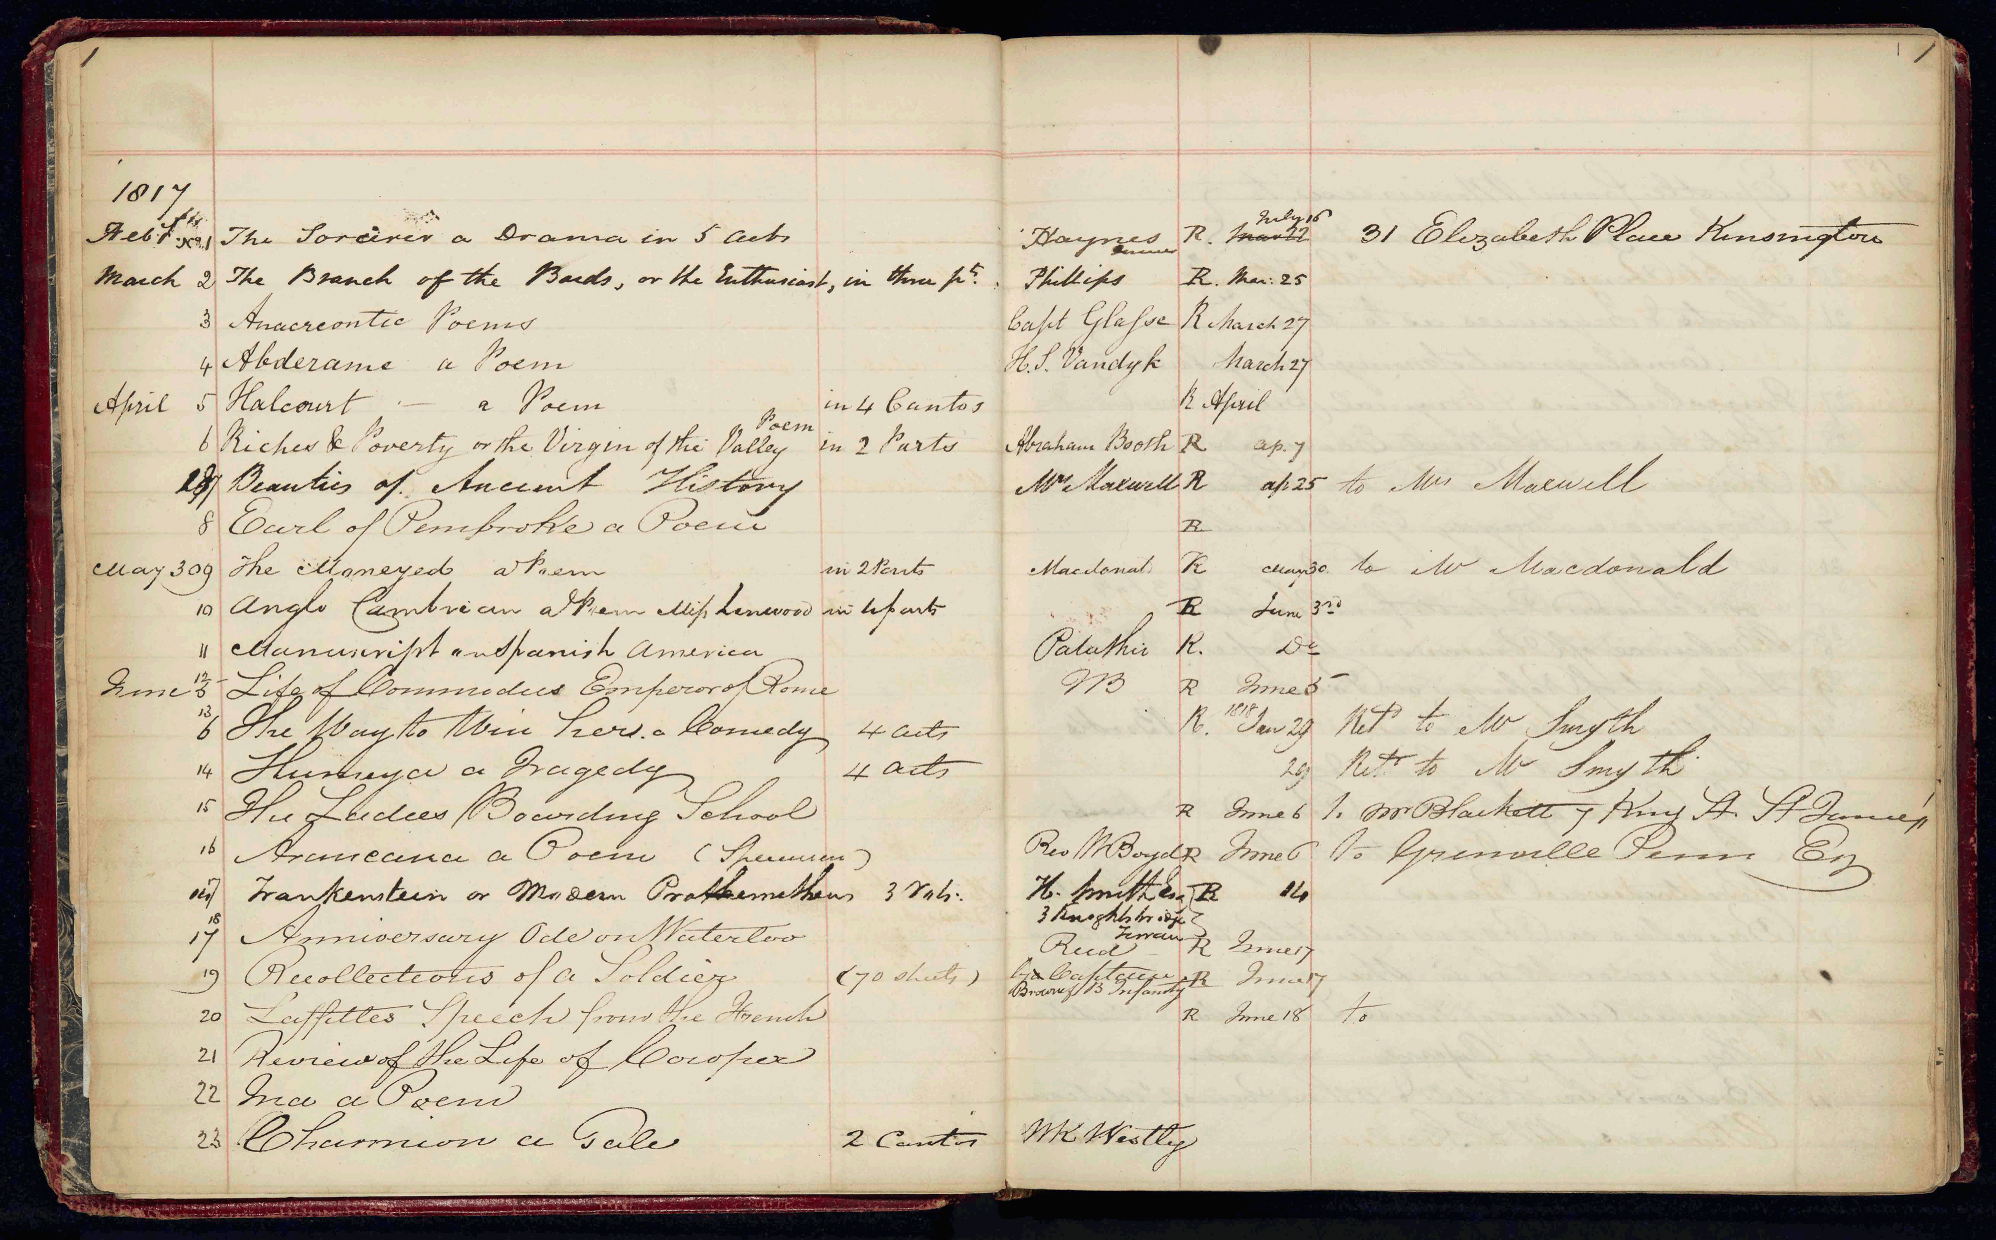 1 1
1817
Feby No. 1 The Sorcerer a Drama in 5 acts Haynes R. July 16 Mar 22 31 Elizabeth Place Kensington
March 2 The Branch of the Bards, or the Enthusiast, in three pts. Phillips R. Mar: 25
3 Anacreontic Poems Capt Glasse R March 27
4 Abderame a Poem H. S. Vandyk March 27
April 5 Halcourt — a Poem in 4 Cantos R April
6 Riches & Poverty or the Virgin of the Valley Poem in 2 Parts Abraham Booth R ap. 7
7 Beauties of Ancient History Mrs Maxwell R ap 25 to Mrs Maxwell
8 Earl of Pembroke a Poem R
May 30 9 The Moneyed a Poem in 2 Parts Macdonald R May 30 to Mr Macdonald
10 Anglo Cambrian a Poem Miss Linwood in 4 parts R June 3rd
11 Manuscript on Spanish America Palathir R. Do
June 5 12 Life of Commodus Emperor of Rome R June 5
6 13 The Way to Win her. a Comedy 4 acts R. 1818 Jan 29 Retd to Mr Smyth
14 Humeya a Tragedy 4 acts 29 Retd to Mr Smyth
15 The Ladies Boarding School R June 6 to Mr Blackett 7 King St. St James's
16 Araucana a Poem (Specimen) Rev W Boyd R June 6 to Grenville Penn Esq
17 Frankenstein or Modern Prothemetheus 3 Vols. H. Smith Esq R 14
3 Knightsbridge Terrace
17 18 Anniversary Ode on Waterloo Reid R June 17
19 Recollections of a Soldier (70 sheets) Captain R June 17
Infantry
20 Laffittes Speech from the French R June 18 to
21 Review of the Life of Cowper
22 Ina a Poem
23 Charmion a Tale 2 Cantos W K Westly